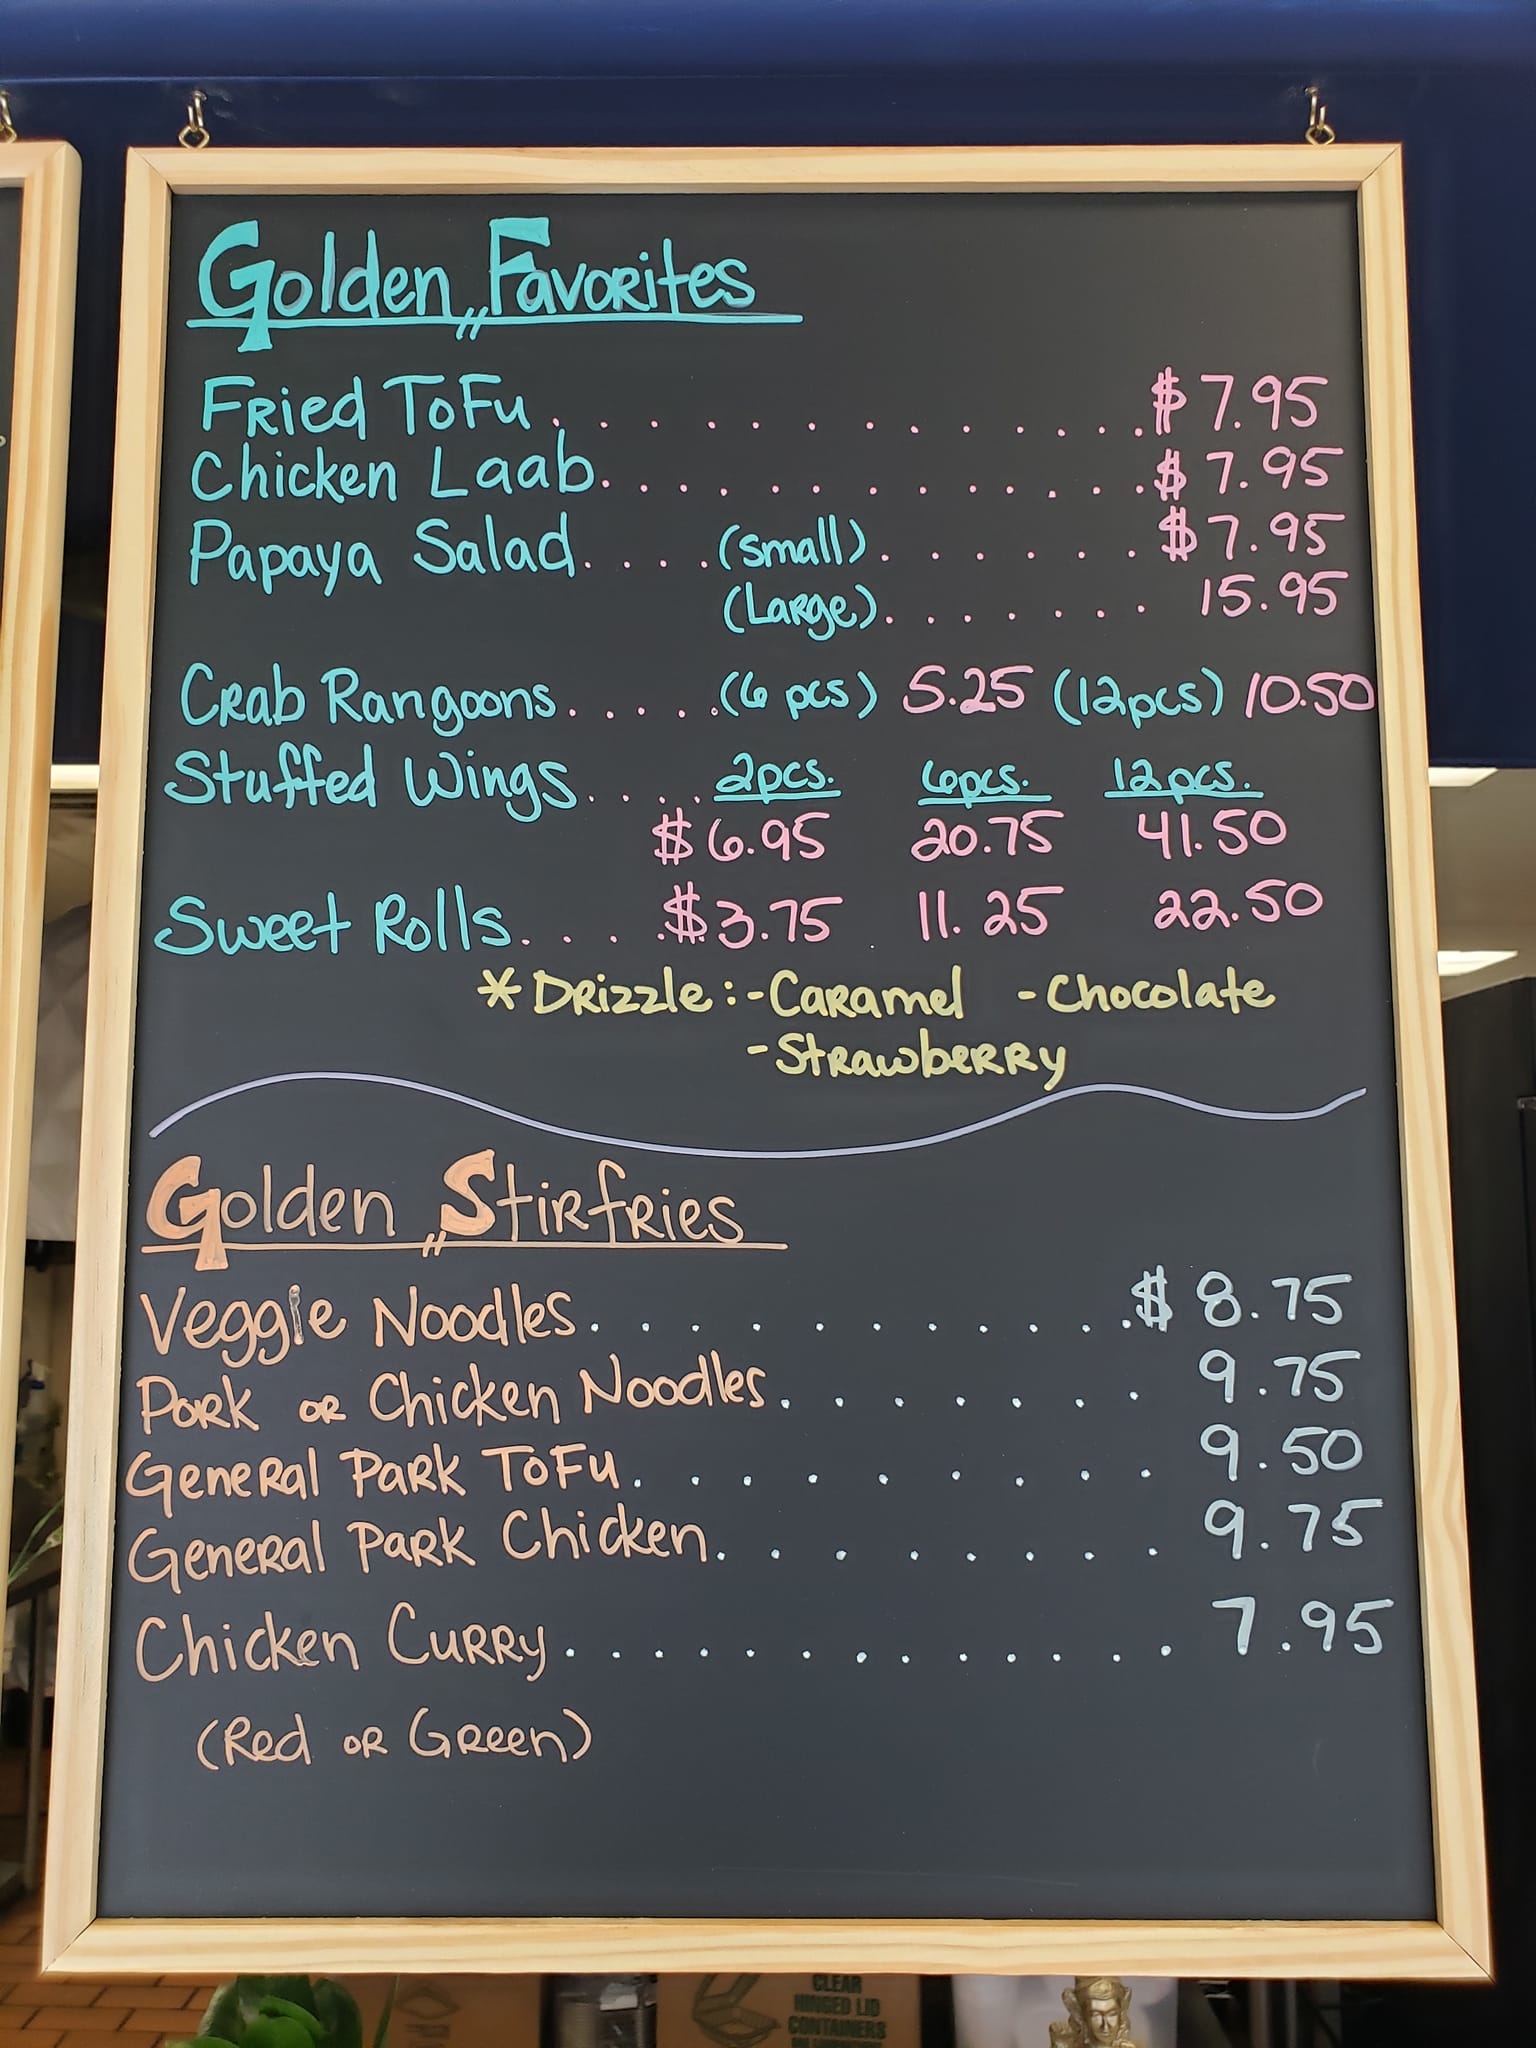 Golden Favorites
Fried Tofu. . . . . . . . . . . . . $7.95
Chicken Laab. . . . . . . . . . . . . $7.95
Papaya Salad. . . . (small). . . . . . $7.95
(Large). . . . . . . 15.95
Crab Rangoons. . . . . (6 pcs) 5.25 (12pcs) 10.50
Stuffed Wings. . . . . 2pcs. 6pcs. 12pcs.
$6.95 20.75 41.50
Sweet Rolls. . . . . $3.75 11.25 22.50
* Drizzle: -Caramel -Chocolate
-Strawberry
Golden Stirfries
Veggie Noodles. . . . . . . . . . . $8.75
Pork or Chicken Noodles. . . . . . . 9.75
General Park Tofu. . . . . . . . . 9.50
General Park Chicken. . . . . . . . 9.75
Chicken Curry. . . . . . . . . . . . 7.95
(Red or Green)
CLEAR
HINGED LID
CONTAINERS